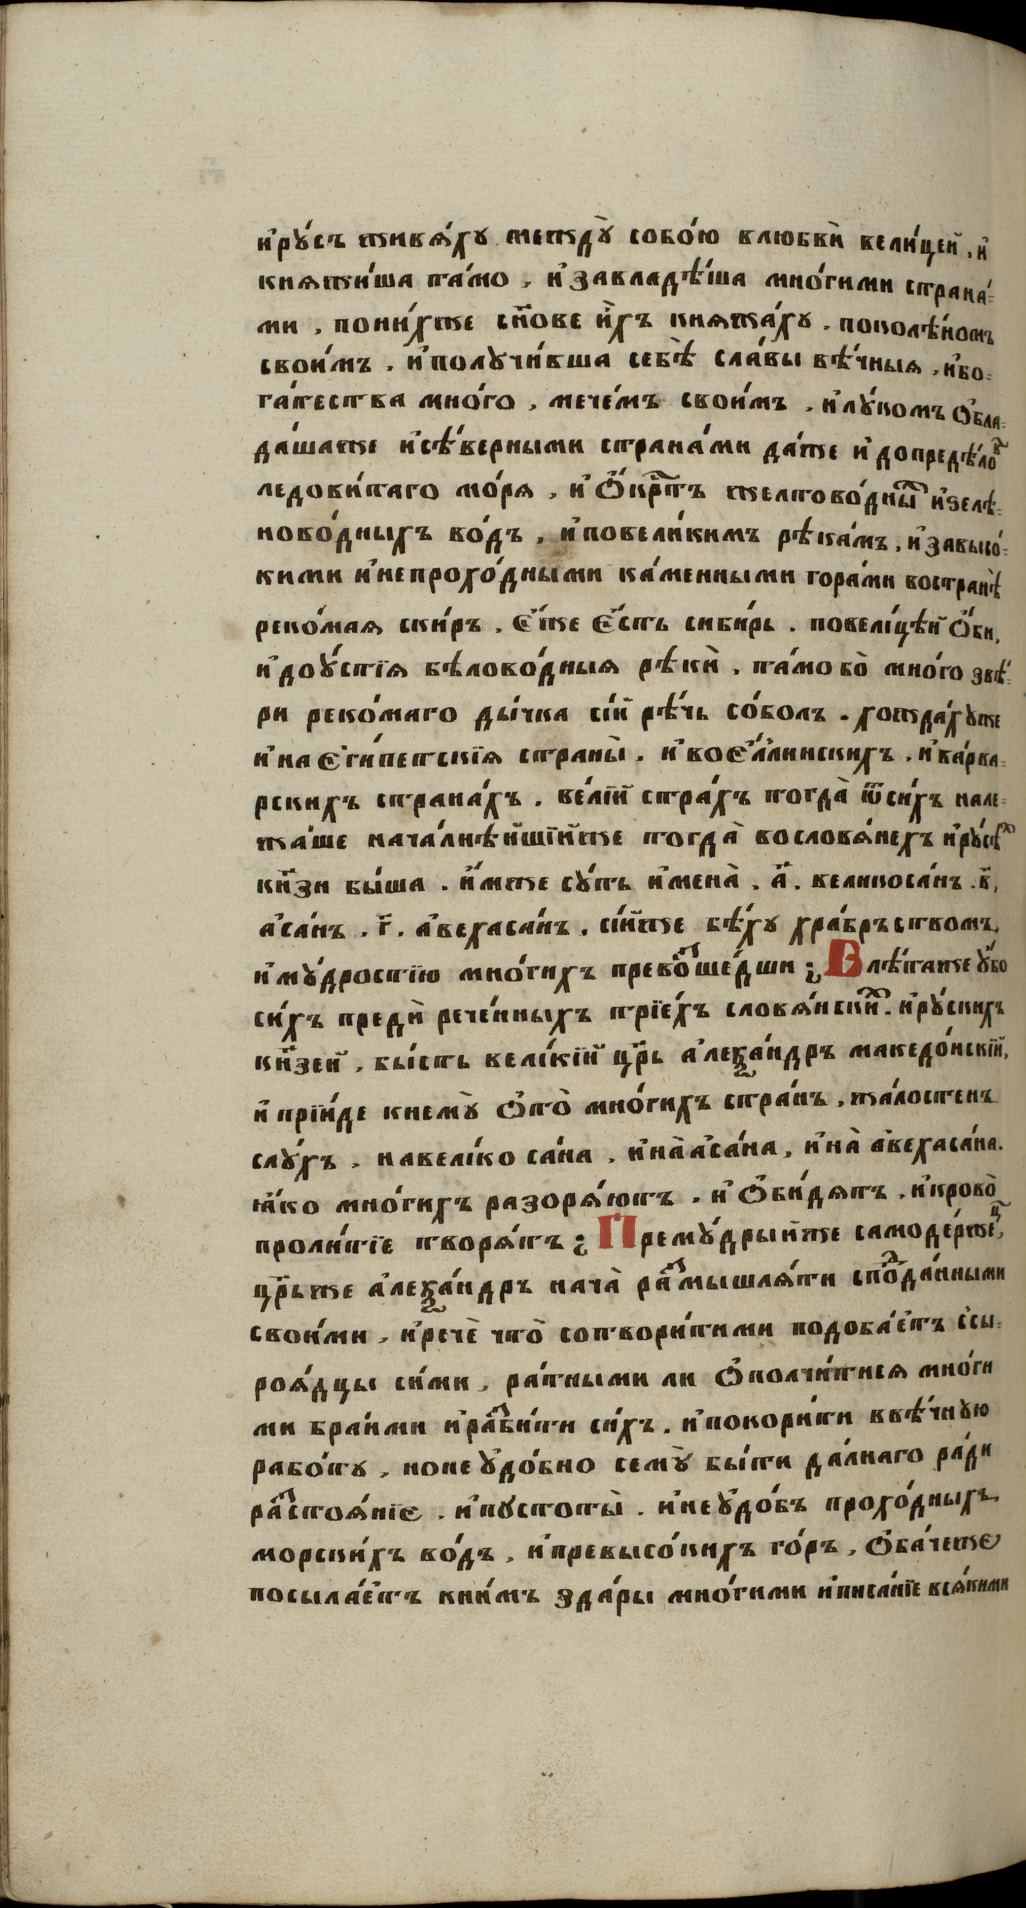 и҆ ру́съ живѧ́хꙋ междꙋ̀ собо́ю в любвѝ вели́цей , и҆
кнѧжи́ша та́мо , и҆ завладѣ́ша мно́гими страна́-
ми , по ни́хже сн҃ове и҆́хъ кнѧжа́хꙋ . по колѣ́номъ
свои́мъ . и҆ получи́вша себѣ̀ сла́вы вѣ́чныѧ , и҆ бо-
га́тества мно́го , мече́мъ свои́мъ , и҆ лу́комъ ѡ҆бла-
да́шаже и҆ сѣ́верными страна́ми да́же и҆ до предѣ́ло в
ледови́таго мо́рѧ , и҆ ѡ҆́кр҇тъ желтово́дны х и҆ зелѣ-
ново́дныхъ во́дъ , и҆ по вели́кимъ рѣка́мъ , и҆ за высо́-
кими и҆ непрохо́дными ка́менными гора́ми во странѣ̀
реко́маѧ ски́ръ , є҆́же є҆́сть сиби́рь . по вели́цѣй ѡ҆́би,
и҆ до ᲂу҆́стїѧ бѣлово́дныѧ рѣкѝ , та́мо бо̀ мно́го звѣ́-
ри реко́маго ды́нка сі́й рѣ́чь со́болъ . хождахꙋже
и҆ на є҆ги́петскїѧ страны̀ . и҆ во є҆́ллинскихъ , и҆ ва́рва-
рскихъ страна́хъ . ве́лїй стра́хъ тогда̀ ѿ си́хъ нале-
жа́ше нача́лнѣйшїйже тогда̀ во словѧ́нехъ и҆ ру́сѣ х
кн҃зи бы́ша . и҆̀мже сꙋ́ть и҆мена̀ . а҃ . великоса́нъ . в҃,
а҆са́нъ . г҃ . а҆вехаса́нъ . сі́йже бѣ́хꙋ хра́бръством,
и҆ му́дростїю мно́гихъ прево с ше́дши ; В лѣ́таже ᲂу҆́бо
си́хъ предѝ рече́нныхъ трїе́хъ словѧ́нски х . и҆ ру́скихъ
кн҃зей , бы́сть вели́кїй цр҃ь а҆леѯа́ндръ македо́нскїй,
и҆ прїи́де к немꙋ̀ ѿ то̀ мно́гихъ стра́нъ , жа́лостенъ
слу́хъ , на вели́ко са́на , и҆ на̀ а҆са́на , и҆ на̀ а҆вехаса́на .
ꙗ҆́ко мно́гихъ разорѧ́ютъ . и҆ ѡ҆би́дѧтъ . и҆ крово̀
проли́тїе творѧ́тъ ; Прему́дрыйже самоде́рже ц,
цр҃ьже а҆леѯа́ндръ нача̀ ра з мышлѧ́ти с по д да́нными
свои́ми , и҆ речѐ что̀ сотвори́тими подоба́етъ с сы-
роѧ́дцы си́ми , ра́тными ли ѡ҆полчи́тисѧ мно́ги
ми бра́нми и҆ ра з би́ти си́хъ . и҆ покори́ти в вѣ́чную
рабо́тꙋ , но не ᲂу҆до́бно семꙋ̀ бы́ти да́лнаго ра́ди
ра з стоѧ́нїе . и҆ пустоты̀ . и҆ не ᲂу҆до́бъ прохо́дныхъ
морски́хъ во́дъ , и҆ превысо́кихъ го́ръ , ѡ҆ба́чеже
посыла́етъ к ни́мъ з да́ры мно́гими и҆ писа́нїе всѧ́кими